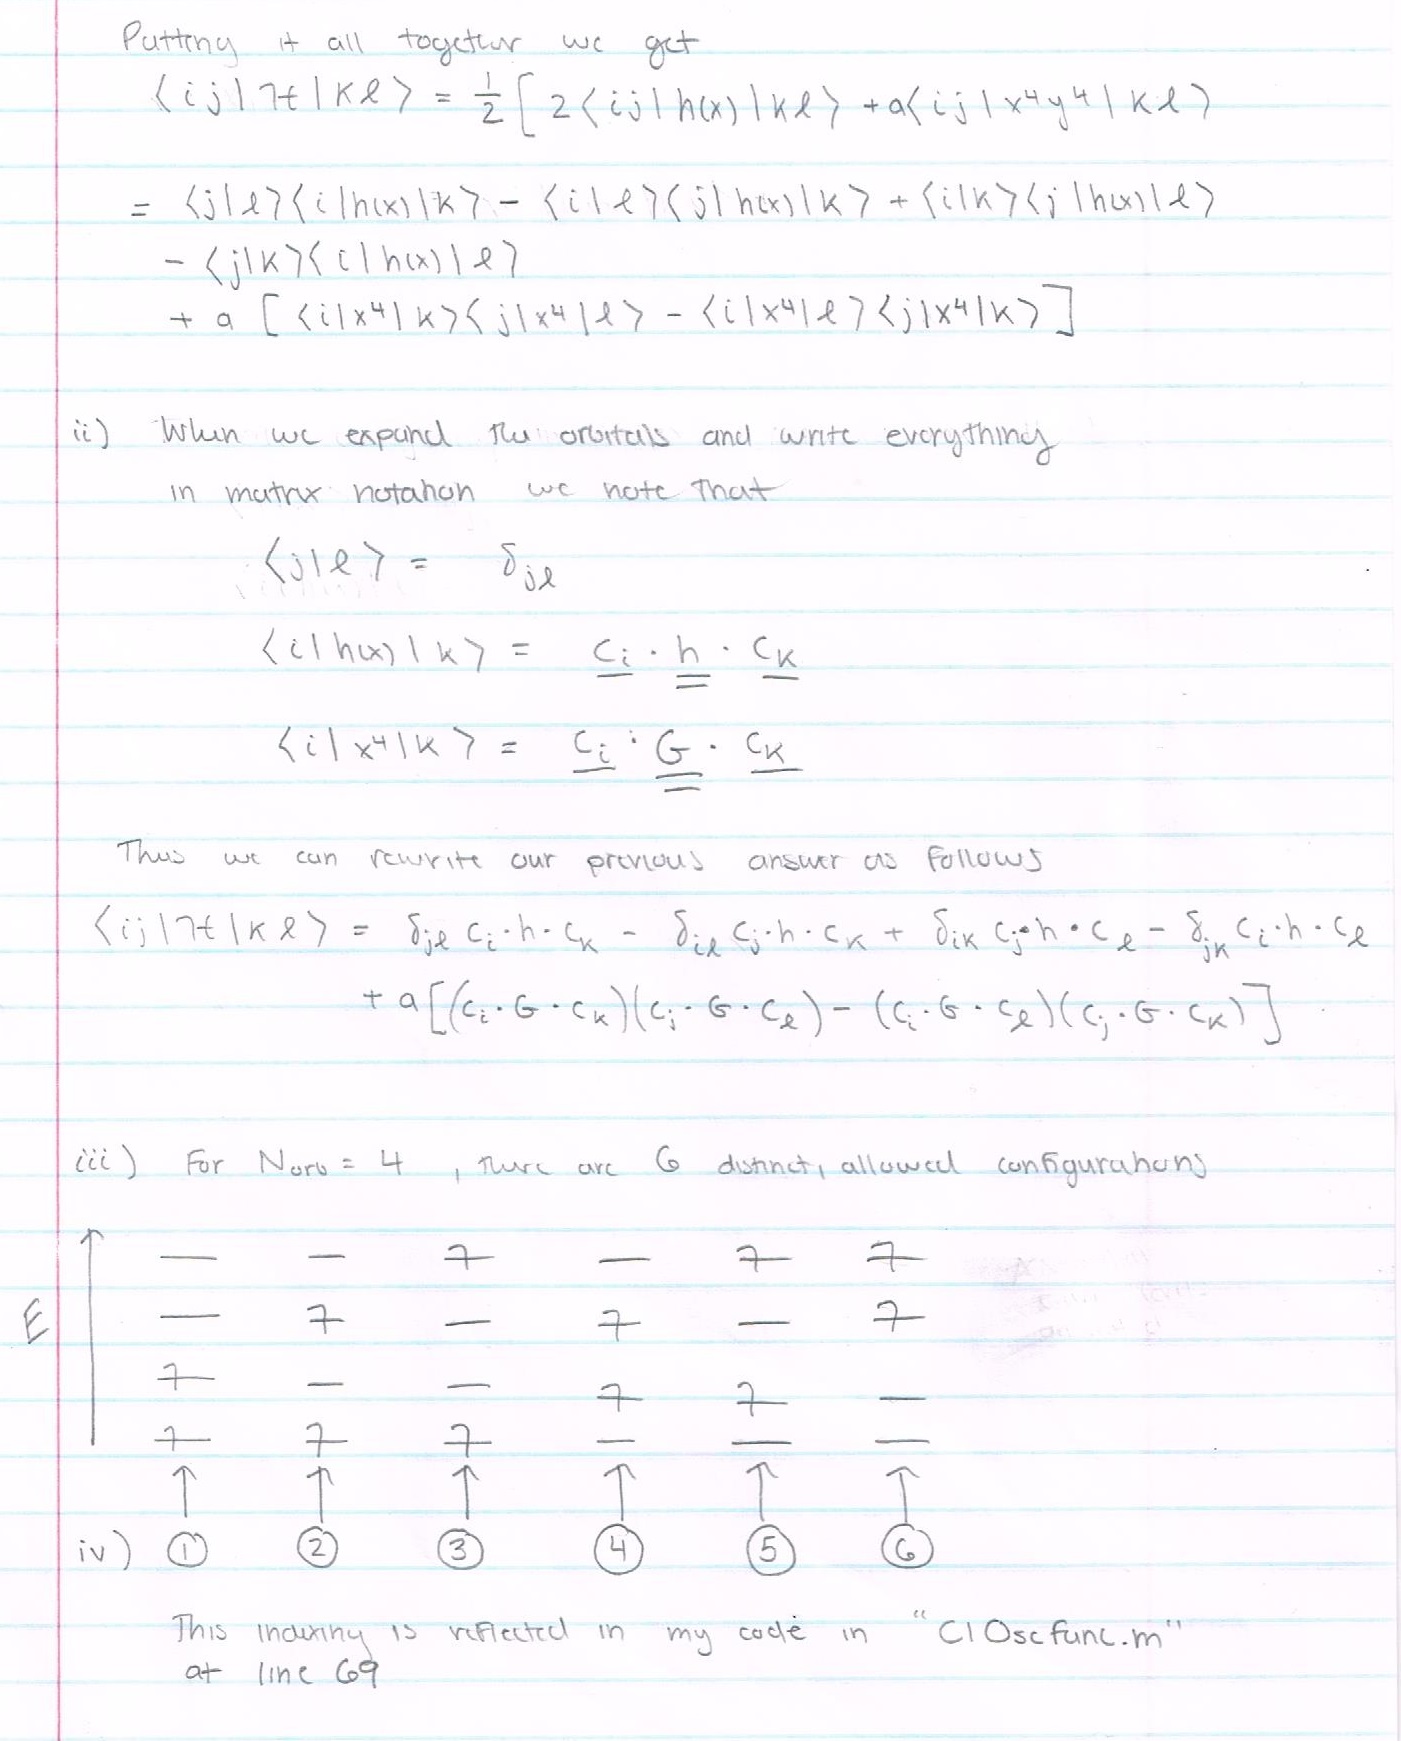 Putting it all together we get
⟨ij|H|kl⟩ = 1/2 [ 2⟨ij|h(x)|kl⟩ + a⟨ij|x⁴y⁴|kl⟩
= ⟨j|l⟩⟨i|h(x)|k⟩ - ⟨i|l⟩⟨j|h(x)|k⟩ + ⟨i|k⟩⟨j|h(x)|l⟩
- ⟨j|k⟩⟨i|h(x)|l⟩
+ a [⟨i|x⁴|k⟩⟨j|x⁴|l⟩ - ⟨i|x⁴|l⟩⟨j|x⁴|k⟩]
ii) When we expand the orbitals and write everything
in matrix notation we note that
⟨j|l⟩ = δ_jl
⟨i|h(x)|k⟩ = c_i · h · c_k
⟨i|x⁴|k⟩ = c_i · G · c_k
Thus we can rewrite our previous answer as follows
⟨ij|H|kl⟩ = δ_jl c_i·h·c_k - δ_il c_j·h·c_k + δ_ik c_j·h·c_l - δ_jk c_i·h·c_l
+ a[(c_i·G·c_k)(c_j·G·c_l) - (c_i·G·c_l)(c_j·G·c_k)]
iii) For Norb = 4, there are 6 distinct, allowed configurations
E
iv) ① ② ③ ④ ⑤ ⑥
This indexing is reflected in my code in "CIOscfunc.m"
at line 69